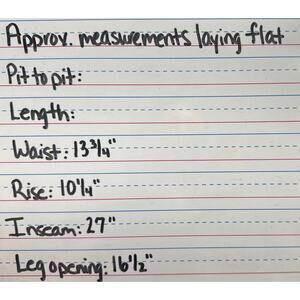 Approx. measurements laying flat
Pit to pit:
Length:
Waist: 13 3/4"
Rise: 10 1/4"
Inseam: 27"
Leg opening: 16 1/2"